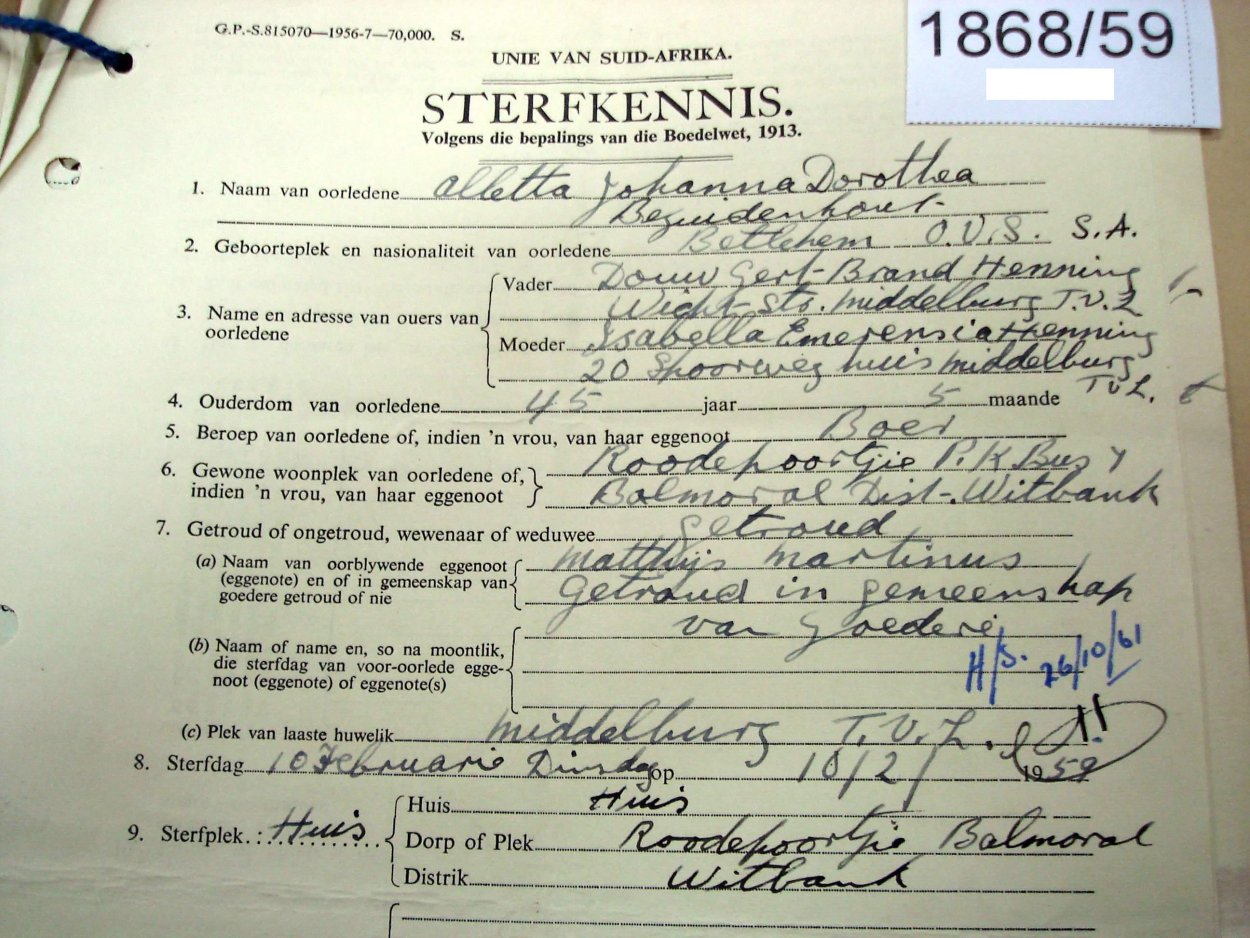 G.P.-S.815070—1956-7—70,000. S.
1868/59
UNIE VAN SUID-AFRIKA.
STERFKENNIS.
Volgens die bepalings van die Boedelwet, 1913.
1. Naam van oorledene Alletta Johanna Dorothea
Bezuidenhout
2. Geboorteplek en nasionaliteit van oorledene Betlehem O.V.S. S.A.
3. Name en adresse van ouers van oorledene
Vader Douw Gert Brand Henning
Str. Middelburg T.V.L
Moeder Isabella Emerensia Henning
20 Spoorweg huis Middelburg
TVL.
4. Ouderdom van oorledene 45 jaar 5 maande
5. Beroep van oorledene of, indien 'n vrou, van haar eggenoot Boer
6. Gewone woonplek van oorledene of, indien 'n vrou, van haar eggenoot
Roodepoortjie P.K. Bus Y
Balmoral Dist. Witbank
7. Getroud of ongetroud, wewenaar of weduwee getroud
(a) Naam van oorblywende eggenoot
(eggenote) en of in gemeenskap van
goedere getroud of nie
Matthijs Martinus
Getroud in gemeenskap
van Goedere
(b) Naam of name en, so na moontlik,
die sterfdag van voor-oorlede egge-
noot (eggenote) of eggenote(s)
H/S. 26/10/61
(c) Plek van laaste huwelik Middelburg T.V.L.
8. Sterfdag 10 Februarie Dinsdag op 10/2/ 1959
9. Sterfplek.: Huis
Huis Huis
Dorp of Plek Roodepoortjie Balmoral
Distrik Witbank